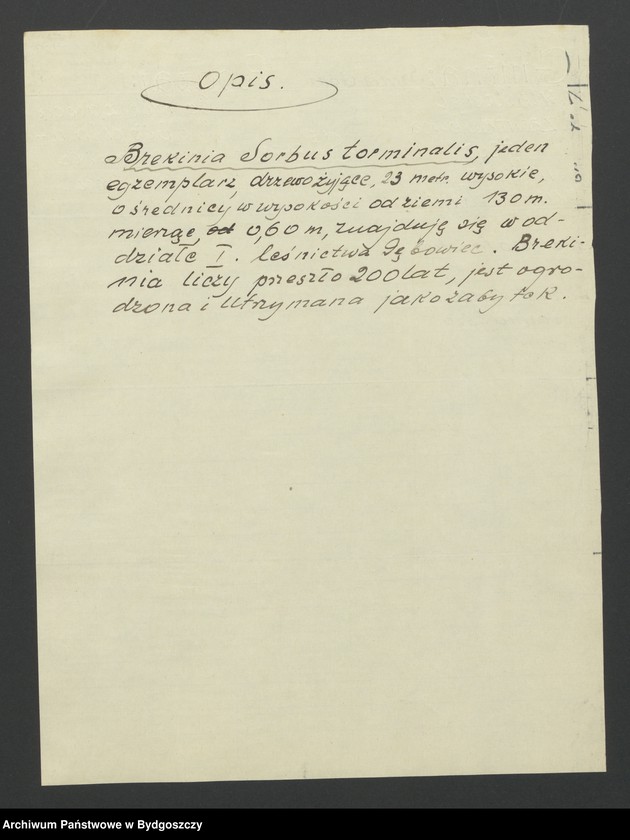 Opis.
Brekinia Sorbus torminalis, jeden
egzemplarz, drzewo żyjące, 23 metr. wysokie,
o średnicy w wysokości od ziemi 130 m.
mierząc, od 0,60 m, znajduję się w od-
dziale I. leśnictwa Dębowiec. Breki-
nia liczy przeszło 200 lat, jest ogro-
dzona i utrzymana jako zabytek.
Archiwum Państwowe w Bydgoszczy